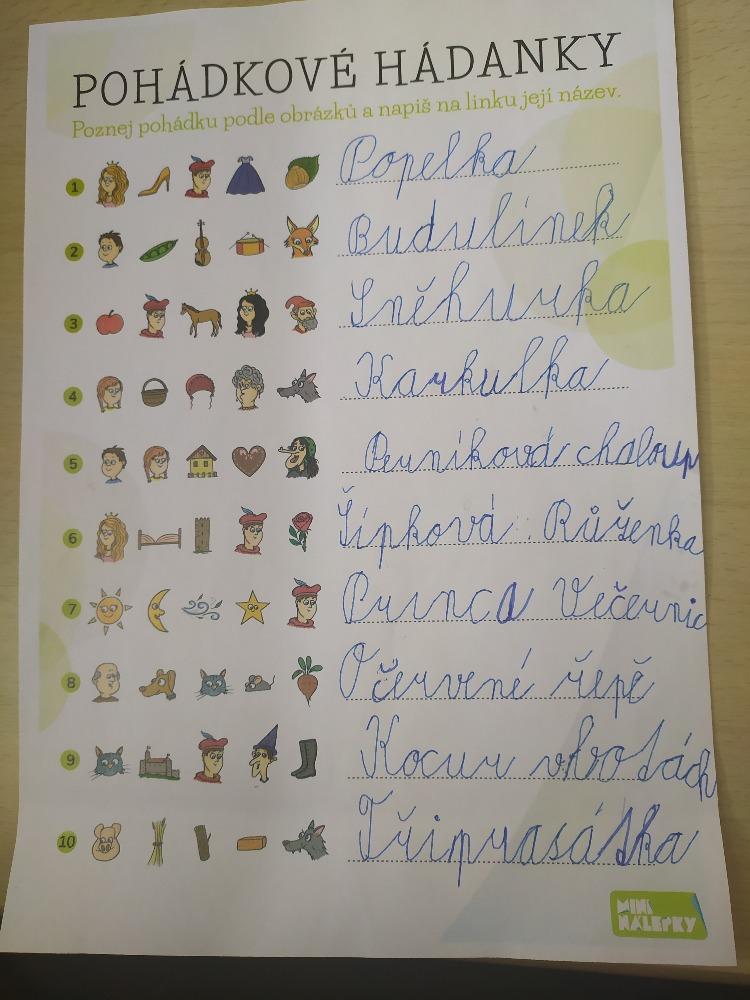 POHÁDKOVÉ HÁDANKY
Poznej pohádku podle obrázků a napiš na linku její název.
1 Popelka
2 Budulínek
3 Sněhurka
4 Karkulka
5 Perníková chaloup
6 Šípková Růženka
7 Princa Večernic
8 O červené řepě
9 Kocur vbotách
10 Třiprasátka
MINI
NÁLEPKY